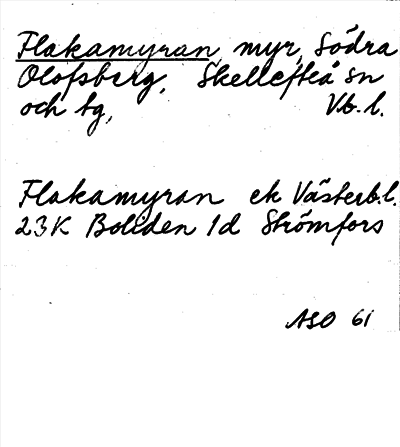 Flakamyran, myr, Södra
Olofsberg, Skellefteå sn
och tg, Vb. l.
Flakamyran ek Västerb.l.
23K Boliden 1d Strömfors
ASO 61